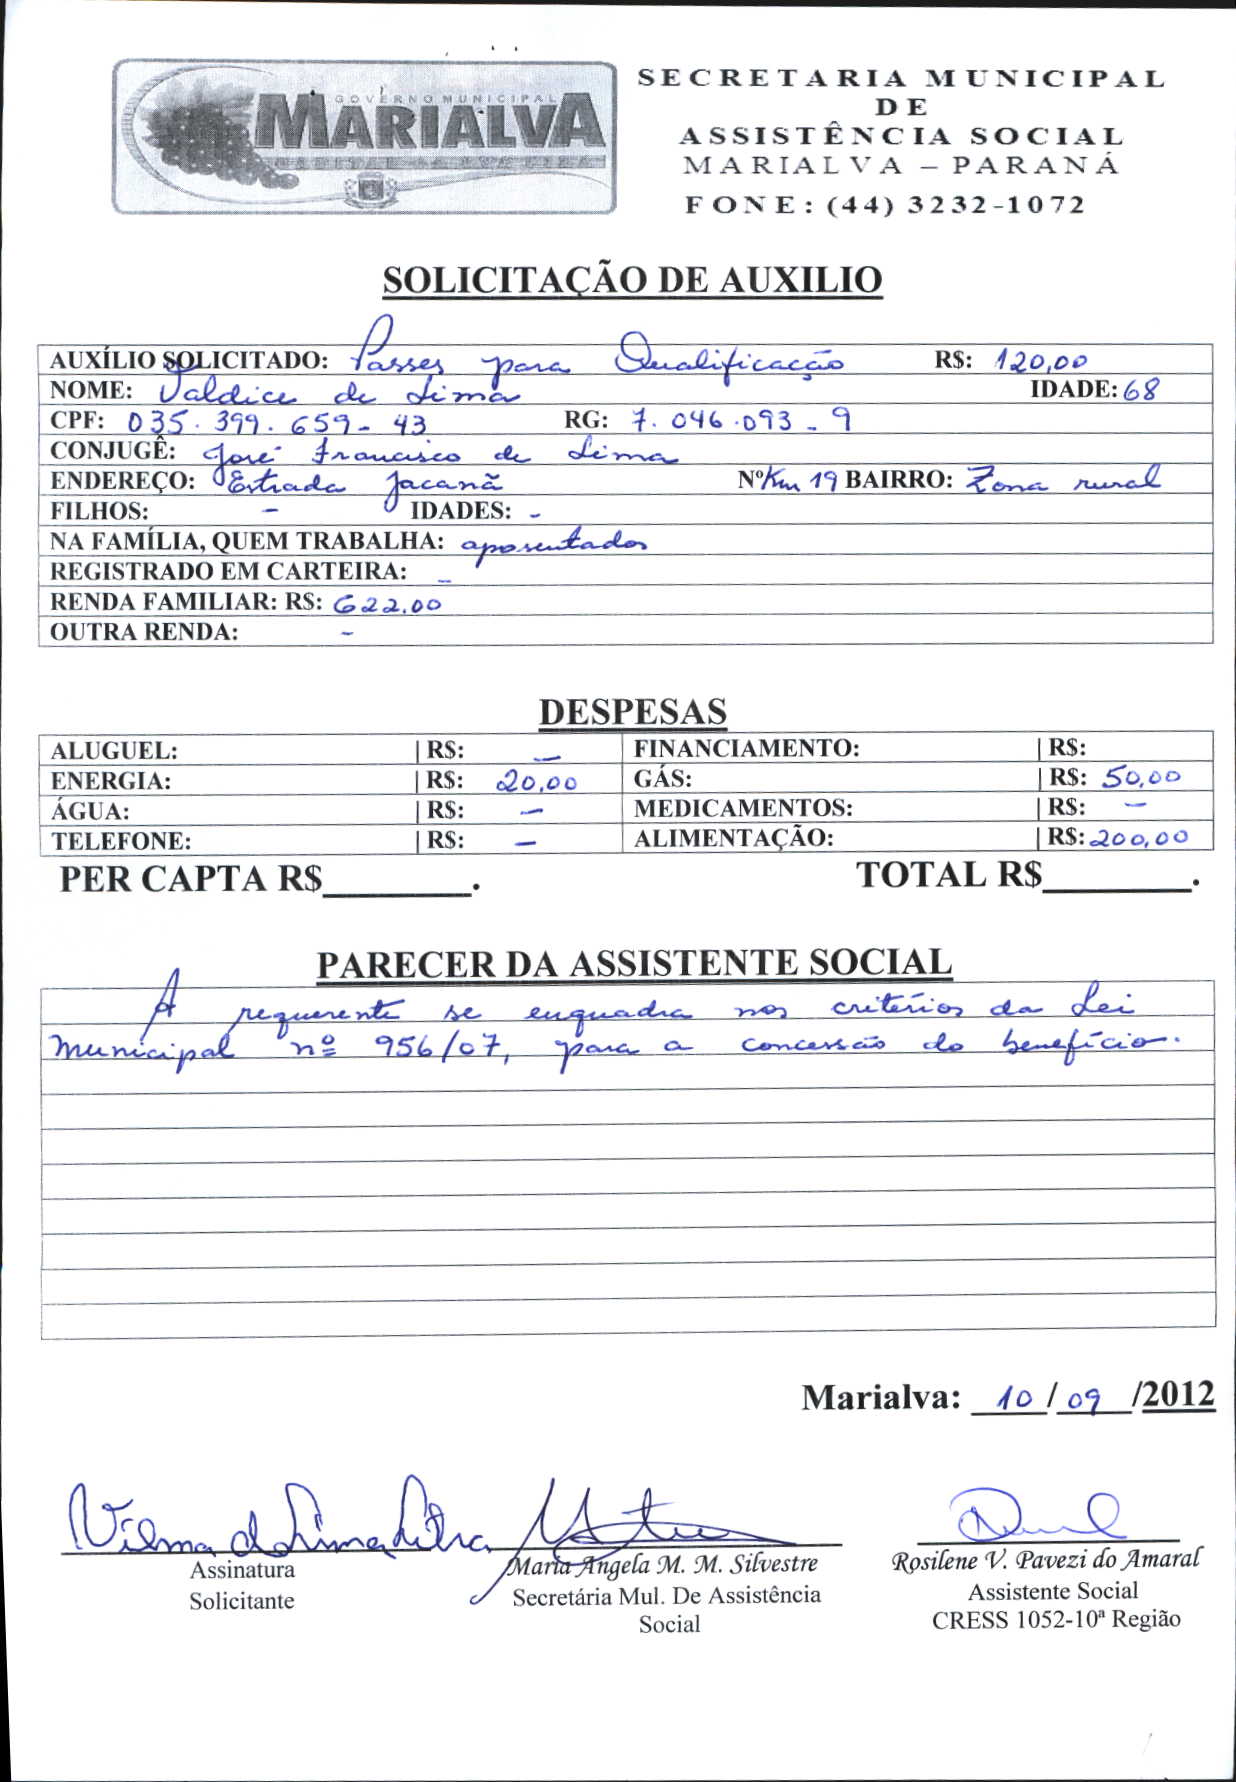 GOVERNO MUNICIPAL
MARIALVA
SECRETARIA MUNICIPAL
DE
ASSISTÊNCIA SOCIAL
MARIALVA – PARANÁ
FONE: (44) 3232-1072
SOLICITAÇÃO DE AUXILIO
AUXÍLIO SOLICITADO: Passes para Qualificação R$: 120,00
NOME: Valdice de Lima IDADE: 68
CPF: 035.399.659-43 RG: 7.046.093-9
CONJUGÊ: José Francisco de Lima
ENDEREÇO: Estrada Jacanã Nº Km 19 BAIRRO: Zona rural
FILHOS: - IDADES: -
NA FAMÍLIA, QUEM TRABALHA: aposentados
REGISTRADO EM CARTEIRA: -
RENDA FAMILIAR: R$: 622,00
OUTRA RENDA: -
DESPESAS
ALUGUEL: | R$: - FINANCIAMENTO: | R$:
ENERGIA: | R$: 20,00 GÁS: | R$: 50,00
ÁGUA: | R$: - MEDICAMENTOS: | R$: -
TELEFONE: | R$: - ALIMENTAÇÃO: | R$: 200,00
PER CAPTA R$________. TOTAL R$________.
PARECER DA ASSISTENTE SOCIAL
A requerente se enquadra nos critérios da Lei
Municipal nº 956/07, para a concessão do benefício.
Marialva: 10/09/2012
Vilma d Lima
Assinatura
Solicitante
Maria Ângela M. M. Silvestre
Secretária Mul. De Assistência
Social
Rosilene V. Pavezi do Amaral
Assistente Social
CRESS 1052-10ª Região